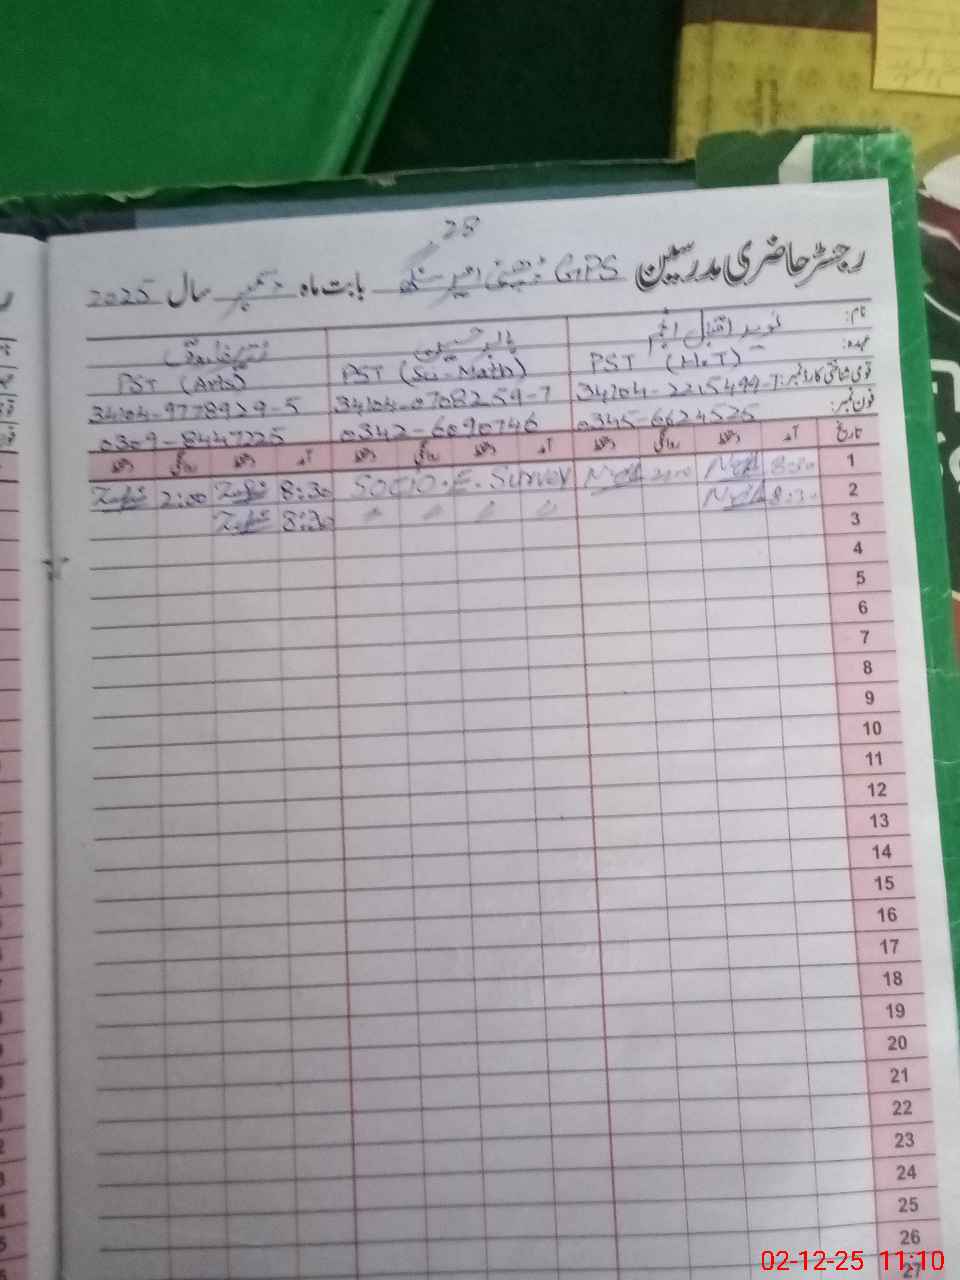 28
رجسٹر حاضری مدرسین GPS امیر سنگھ بابت ماہ دسمبر سال 2025
نام: نوید اقبال انجم
عہدہ: PST (H.T) PST (Sci-Math) PST (Arts)
قومی شناختی کارڈ نمبر: 34104-2215499-7 34104-0708259-7 34104-9778929-5
فون نمبر: 0345-6624525 0342-6090746 0309-8447225
تاریخ آمد دستخط روانگی دستخط آمد دستخط روانگی دستخط آمد دستخط روانگی دستخط
1 8:30 2:00 Socio.E. Survey 8:30 2:00
2 8:30 8:30
3
4
5
6
7
8
9
10
11
12
13
14
15
16
17
18
19
20
21
22
23
24
25
26
27
02-12-25 11:10